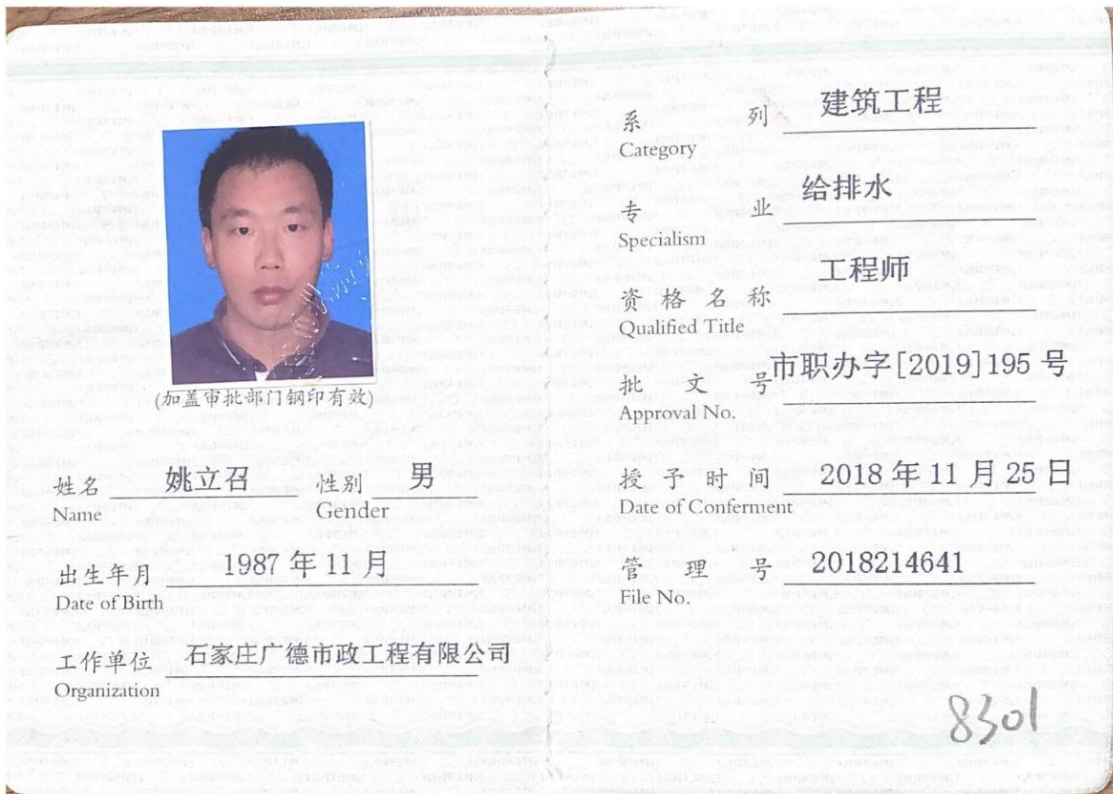 (加盖审批部门钢印有效)
姓名 姚立召 性别 男
Name Gender
出生年月 1987 年 11 月
Date of Birth
工作单位 石家庄广德市政工程有限公司
Organization
系 列 建筑工程
Category
专 业 给排水
Specialism
资格名称 工程师
Qualified Title
批 文 号 市职办字[2019]195 号
Approval No.
授予时间 2018 年 11 月 25 日
Date of Conferment
管 理 号 2018214641
File No.
8301